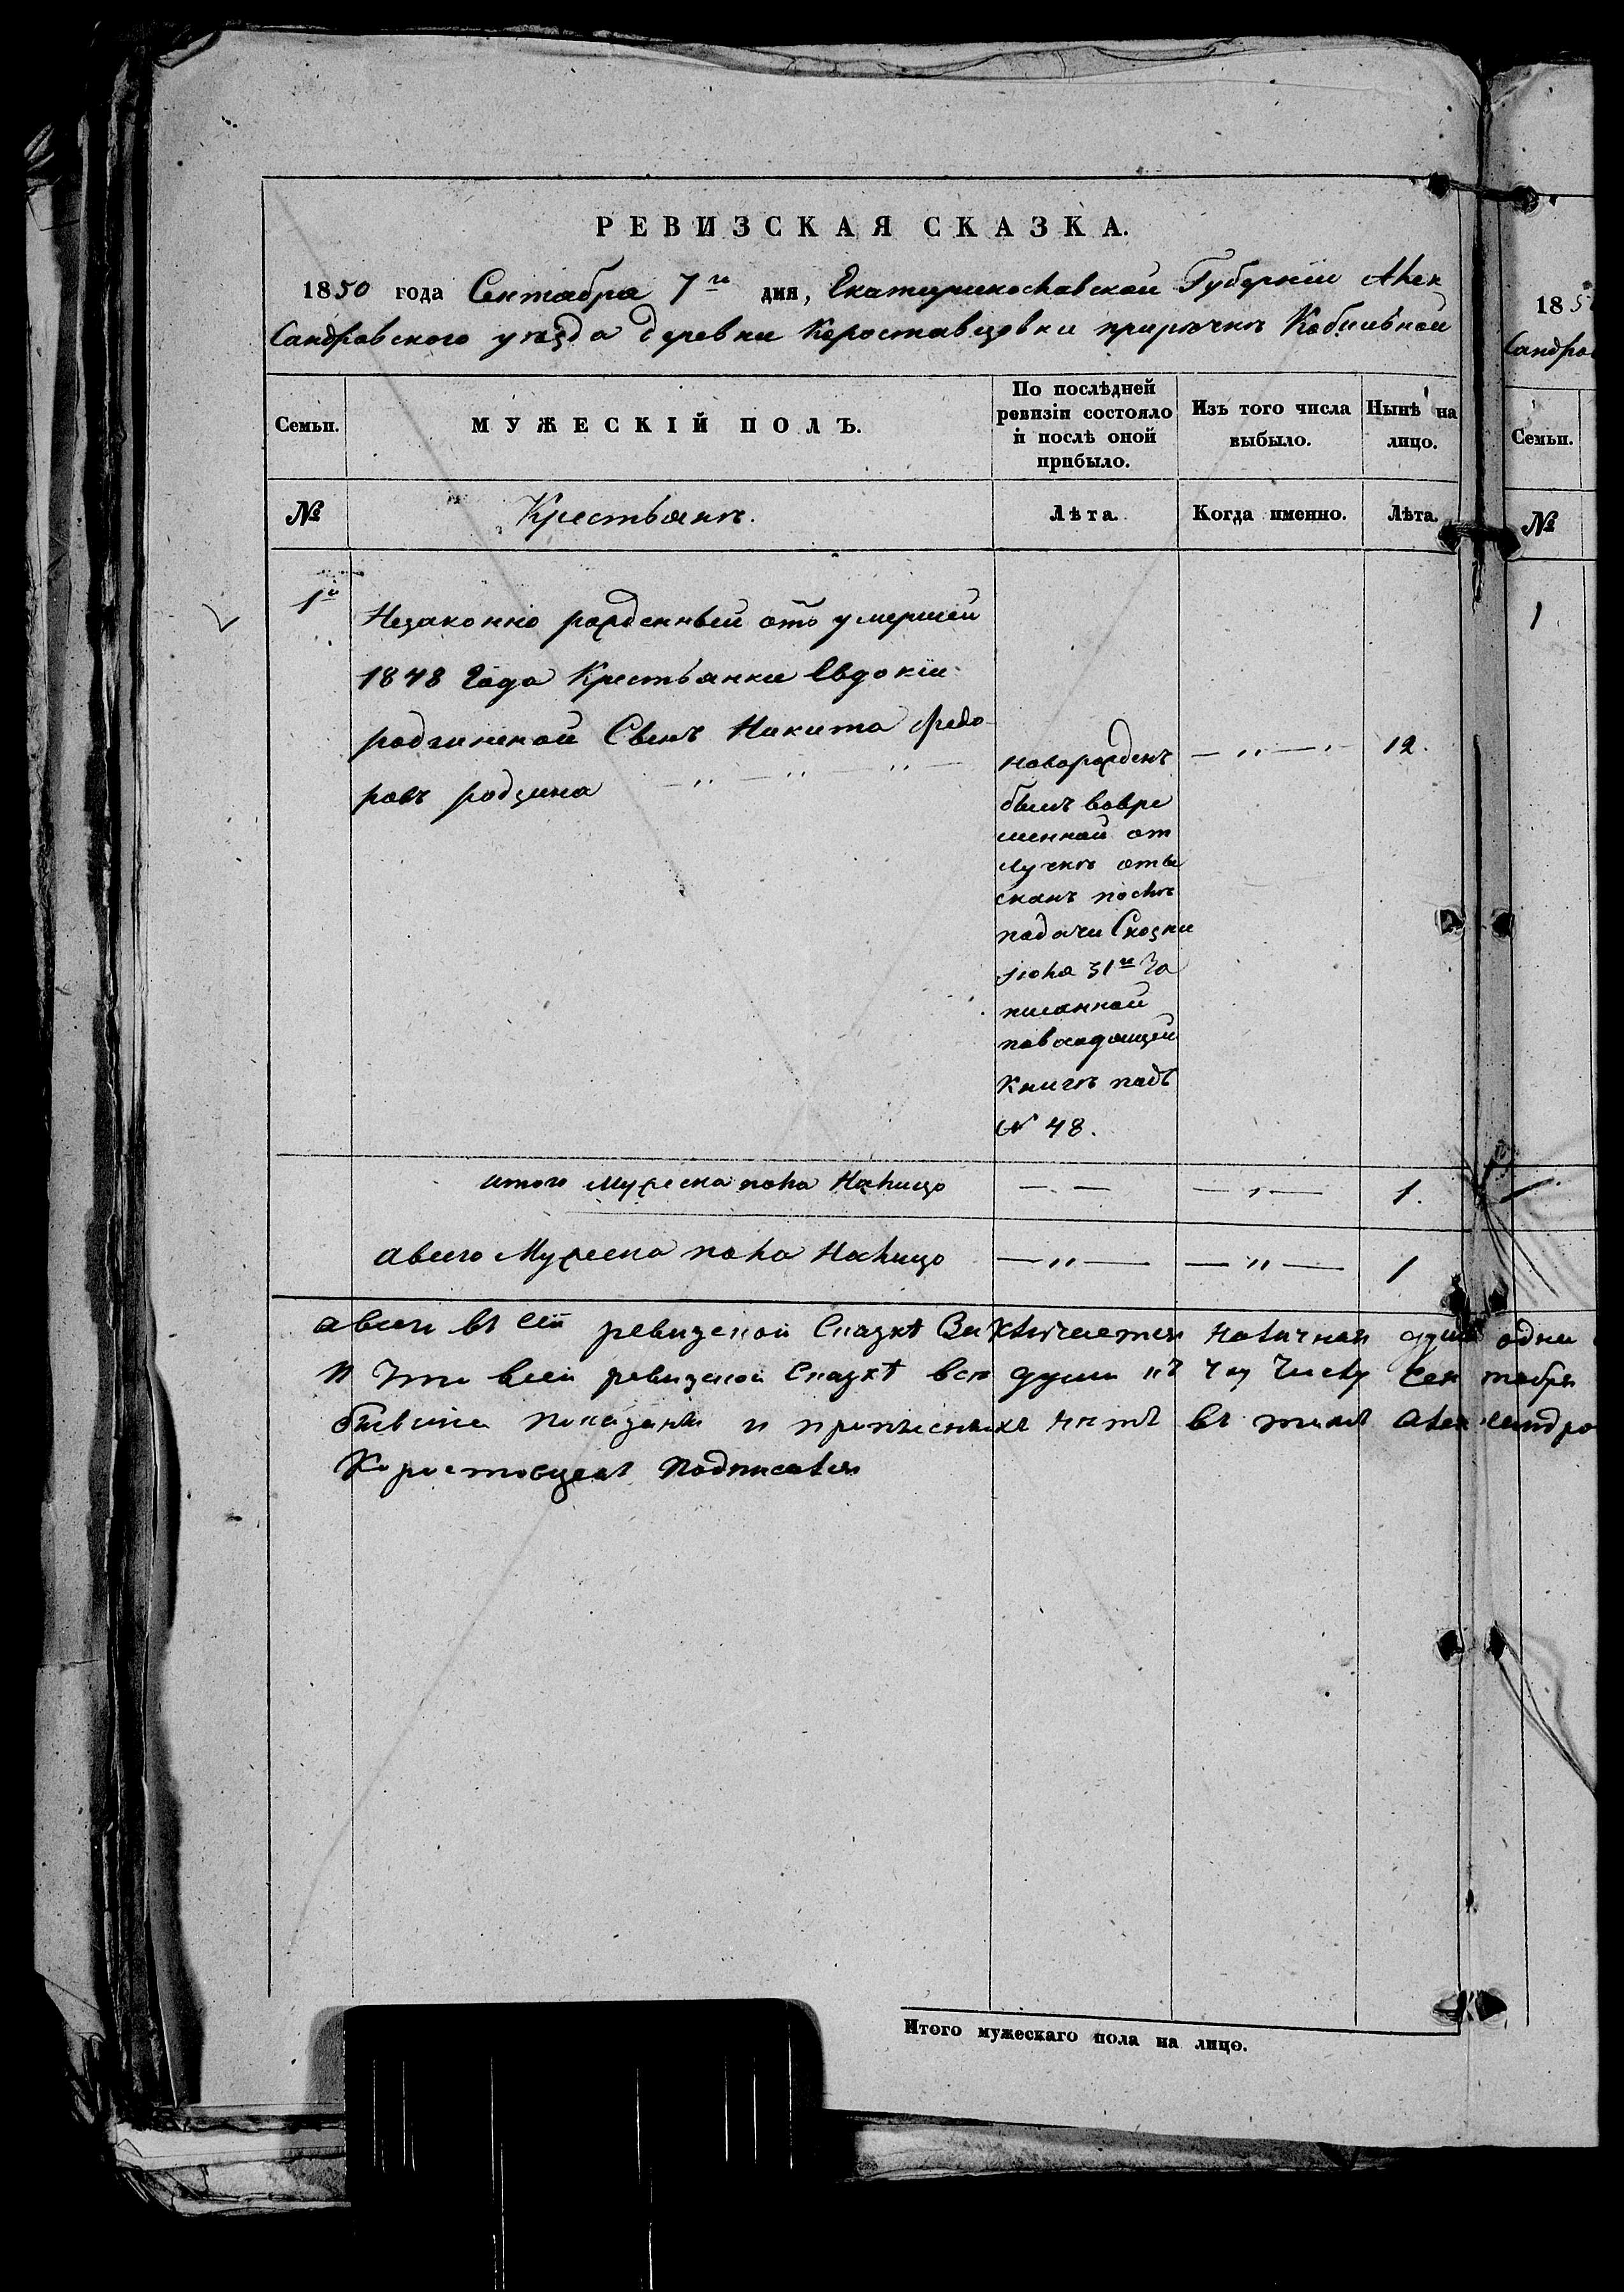 РЕВИЗСКАЯ СКАЗКА.
1850 года Сентабра 7го дня, Екатеринославской Губернии Алек
сандровского уезда деревни Короставцовки приречке Кобильной
Семьи.
МУЖЕСКІЙ ПОЛЪ.
По послѣдней
ревизіи состояло
и послѣ оной
прибыло.
Изъ того числа
выбыло.
Нынѣ на
лицо.
№
Крестьянъ.
Лѣта.
Когда именно.
Лѣта.
1й
Незаконно рожденный отъ умершей
1848 года Крестьянки Евдокіи
Сынъ Никита Федо
ровъ родзина
новорожденъ
12.
былъ вовре
менной от
лучкѣ оты
сканъ послѣ
подачи Сказки
31го За
писанной
повходящей
Книгѣ подъ
N 48.
итого Мужеска пола Налицо
1.
авсего Мужеска пола Налицо
1
авсего въ сей ревизской Сказкѣ Заключается наличная душа одна
И что всей ревизской Сказкѣ все души къ 7му Числу Сентября
бывшіе показаны и прописныхъ нетъ въ томъ Александро
Коростовцевъ Подписался
Итого мужескаго пола на лицо.
185
сандро
Семьи.
№
1